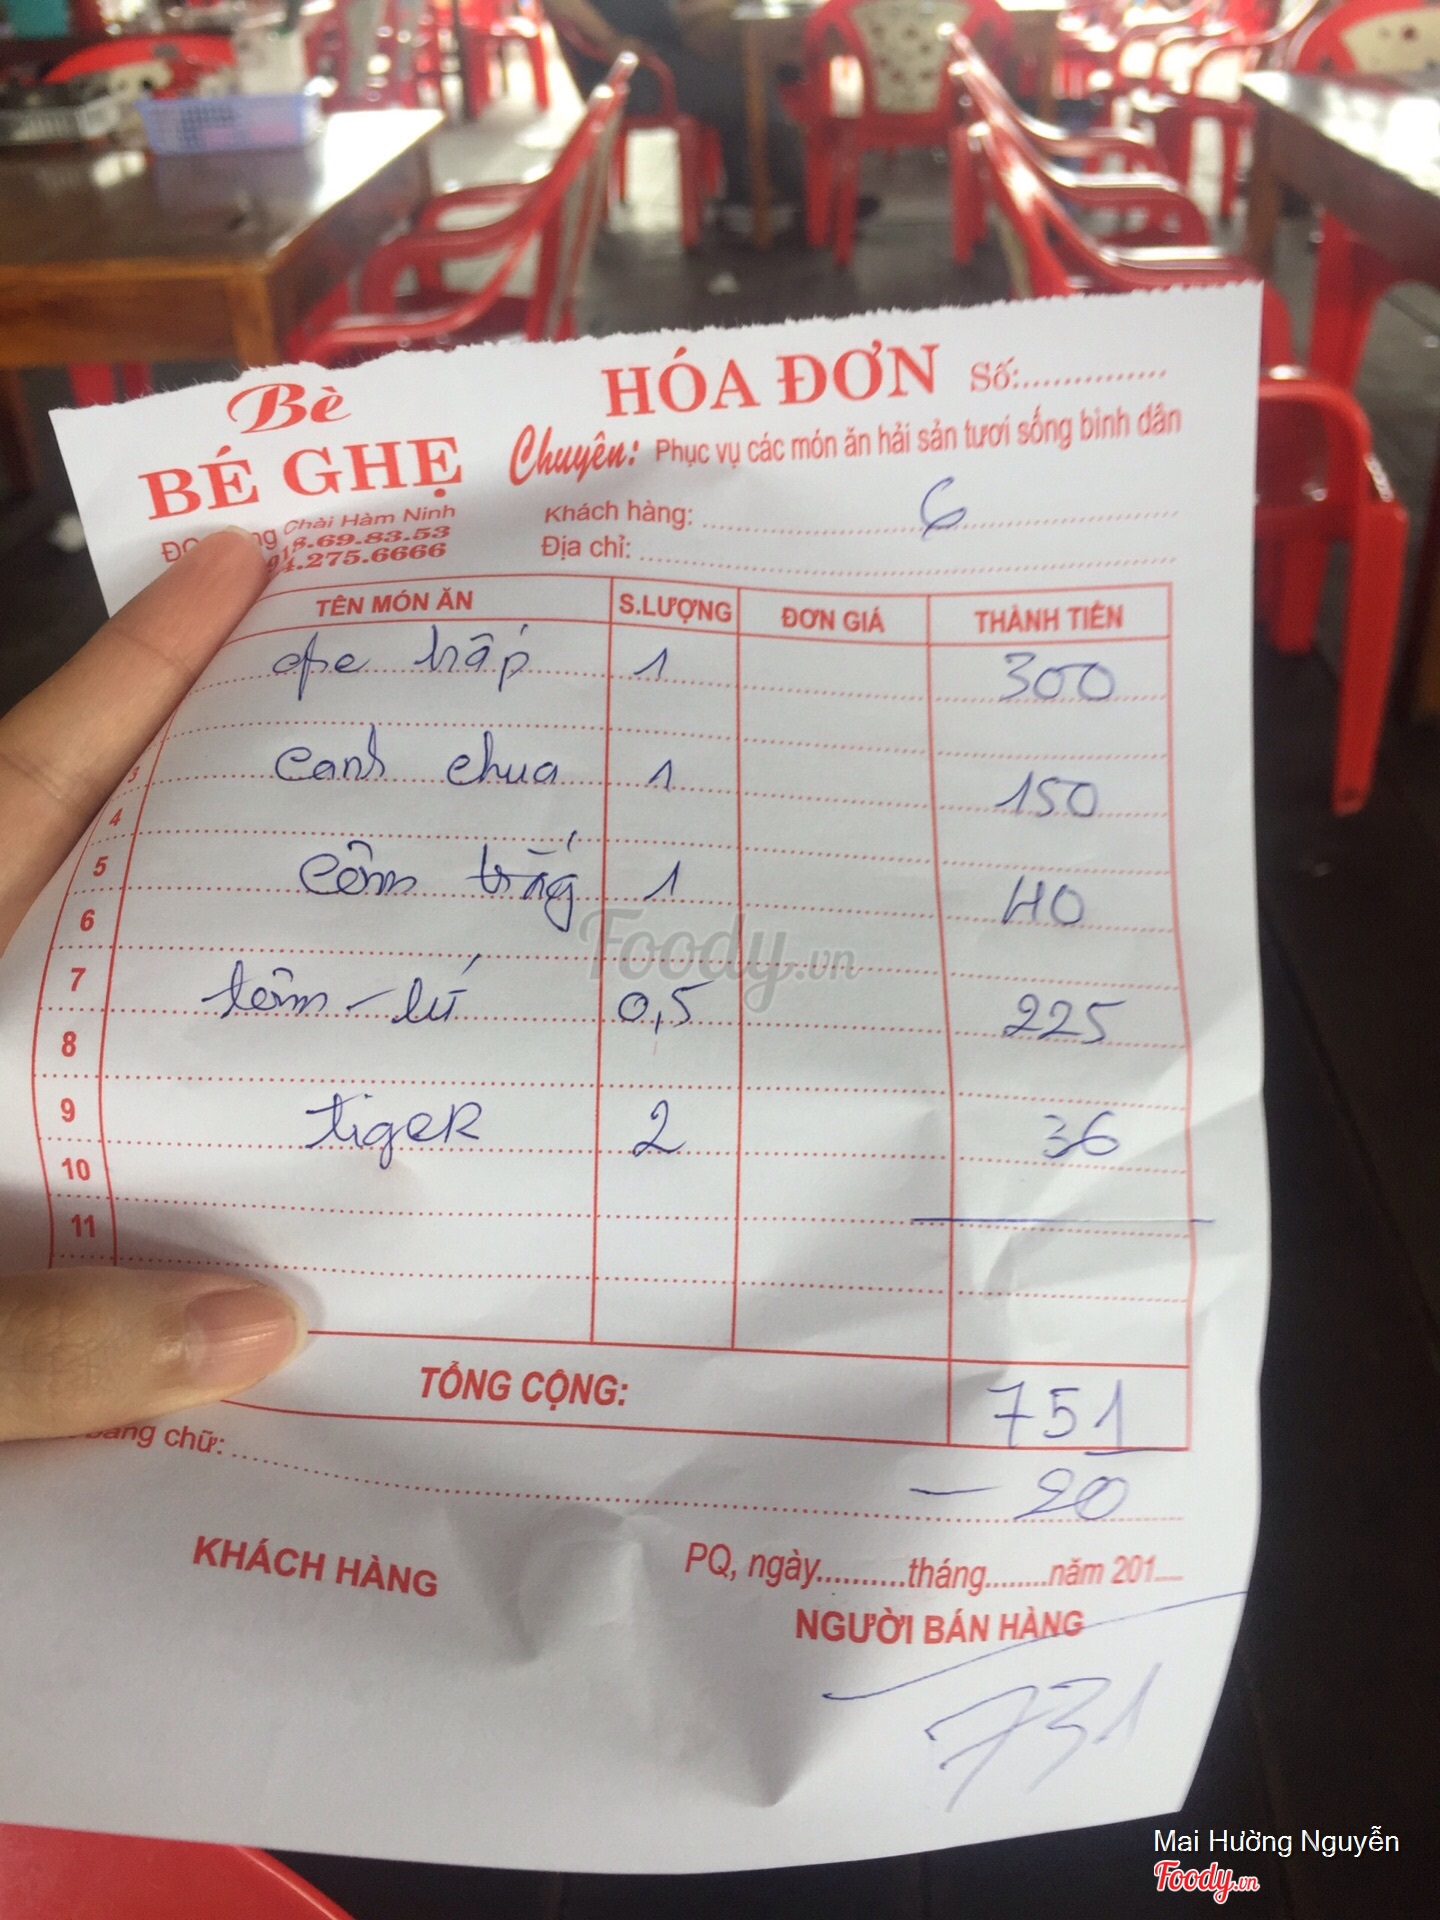 Bè
BÉ GHẸ
Chài Hàm Ninh
18.69.83.53
94.275.6666
HÓA ĐƠN Số:
Chuyên: Phục vụ các món ăn hải sản tươi sống bình dân
Khách hàng: 6
Địa chỉ:
TÊN MÓN ĂN S.LƯỢNG ĐƠN GIÁ THÀNH TIỀN
hấp 1 300
3 canh chua 1 150
4
5 cơm trắng 1 40
6
7 tôm - 0,5 225
8
9 tiger 2 36
10
11
TỔNG CỘNG: 751
bằng chữ:
- 20
KHÁCH HÀNG
PQ, ngày tháng năm 201
NGƯỜI BÁN HÀNG
731
Foody.vn
Mai Hường Nguyễn
Foody.vn